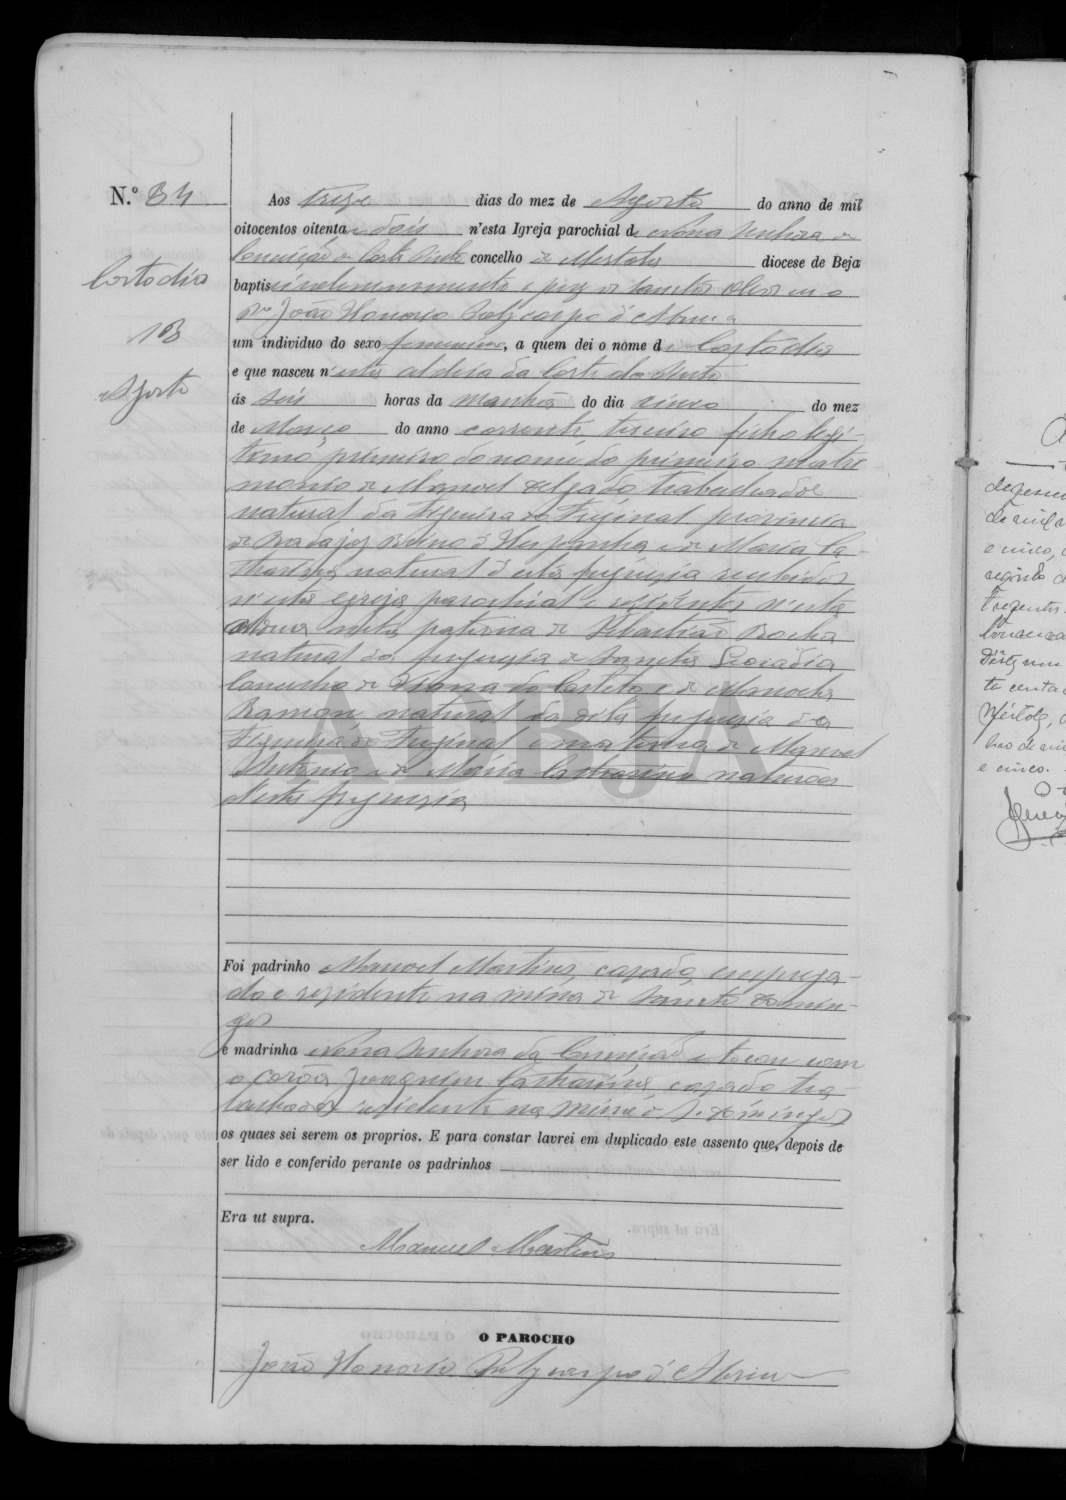 N.º 34
Custodia
13
Agosto
Aos treze dias do mez de Agosto do anno de mil
oitocentos oitenta e dois n'esta Igreja parochial de Nossa Senhora da
Conceição de Corte Pinto concelho de Mertola diocese de Beja
baptisei solemnemente e puz os sanctos oleos eu o
João Honorio Polycarpo d'Abreu
um individuo do sexo femenino, a quem dei o nome de Custodia
e que nasceu n'esta aldeia da Corte do Pinto
ás seis horas da manhã do dia cinco do mez
de Março do anno corrente, terceiro filho legi-
timo, primeiro do nome do primeiro matri
monio de Manoel Delgado trabalhador
natural da Figueira de Freginal provincia
de Badajoz Reino d'Hespanha e de Maria Ca-
tharina natural d'esta freguezia recebidos
n'esta egreja parochial e rezidentes n'esta
aldeia neta paterna de Sebastião Rocha
natural da freguezia de Sancta
concelho de do Castelo e de Manoela
Ramon natural da dita freguezia da
Figueira de Freginal e materna de Manoel
Antonio e de Maria Catharina naturaes
d'esta freguezia
Foi padrinho Manoel Martins, casado, emprega-
do e rezidente na mina de Sancto Domin-
gos
e madrinha Nossa Senhora da Conceição e tocou com
a corôa Joaquim Catharino casado tra-
balhador rezidente na Mina de S. Domingos
os quaes sei serem os proprios. E para constar lavrei em duplicado este assento que, depois de
ser lido e conferido perante os padrinhos
Era ut supra.
Manuel Martins
O PAROCHO
João Honorio Polycarpo d'Abreu
ADBJA